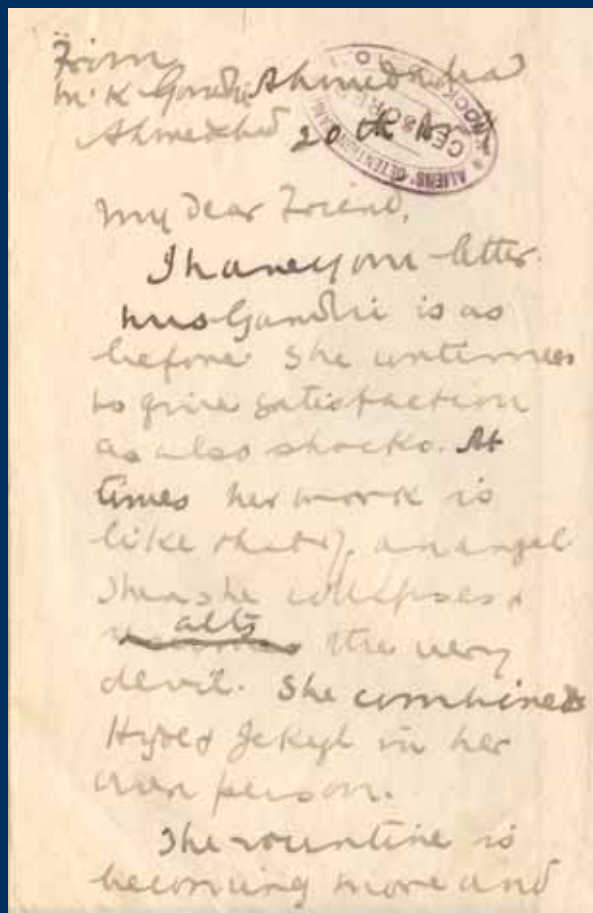 From
M. K. Gandhi Ahmedabad
Ahmedabad 20th
ALIENS' DETENTION CAMP
CENSORED
My dear Friend,
I have your letter.
Mrs Gandhi is as
before. She continues
to give satisfaction
as also shocks. At
times her work is
like that of an angel
Then she collapses &
acts the very
devil. She combines
Hyde & Jekyl in her
own person.
The rountine is
becoming more and